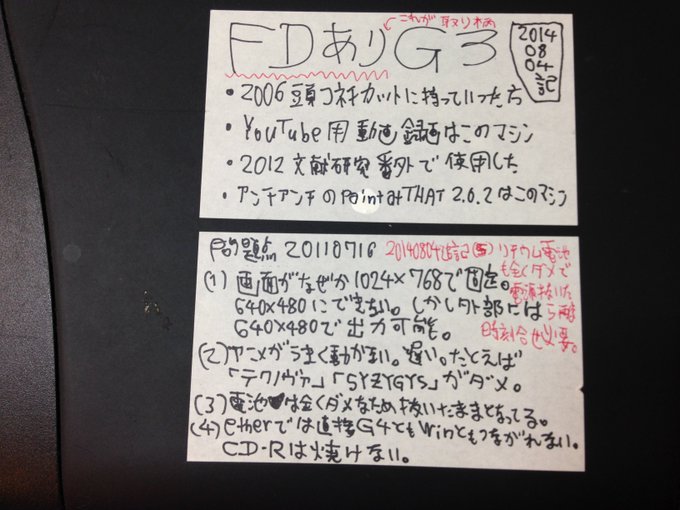 これが取り柄
FDありG3
2014
08
04
記
・2006頭コネチカットに持っていった方
・YouTube用動画録画はこのマシン
・2012文献研究番外で使用した
・アンチアンチのpaintmTHAT 2.6.2はこのマシン
問題点 20110716
20140804追記(5)リチウム電池
も全くダメで
電源抜いた
ら再
時刻合せ必要。
(1)画面がなぜか1024×768で固定。
640×480にできない。しかし外部には
640×480で出力可能。
(2)アニメがうまく動かない。遅い。たとえば
「テクノヴァ」「SYZYGYS」がダメ。
(3)電池は全くダメなため抜いたままとなってる。
(4)etherでは直接G4ともWinともつながれない。
CD-Rは焼けない。